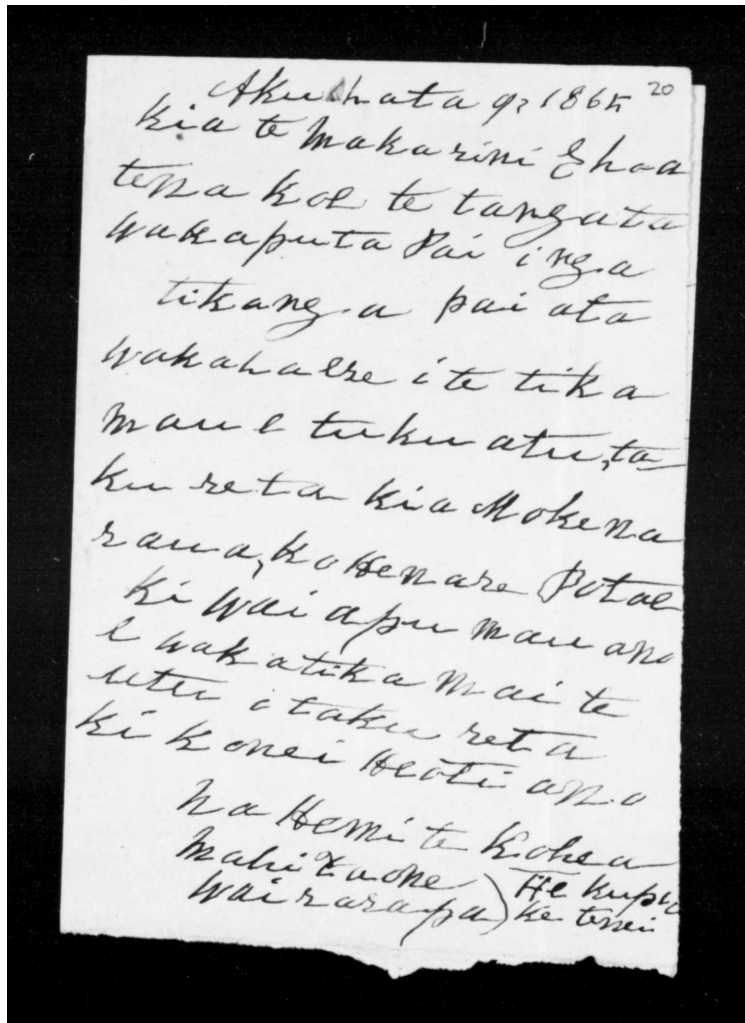 20
Akuhata 9, 1865
Kia te Makarini E hoa
tena koe te tangata
wakaputa Pai i nga
tikanga pai ata
wakahaere i te tika
mau e tuku atu, ta-
ku reta kia Mokena
raua, ko Henare Potae
ki Waiapu mau ano
e wakatika mai te
utu o taku reta
ki konei Heoti ano
na Hemi te
Wairarapa) He kupu
ke tenei